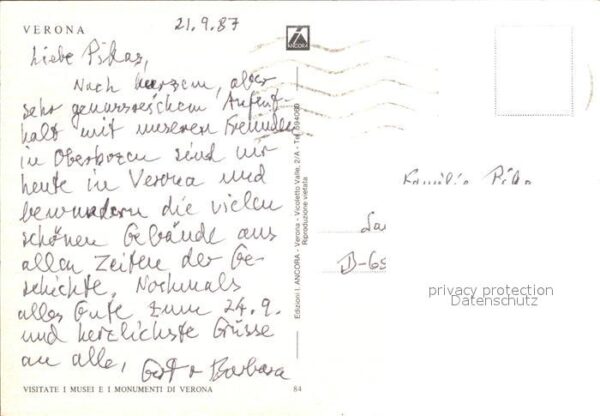 VERONA
21.9.87
ANCORA
Liebe Pikas,
Nach kurzem, aber
sehr genussreichem Aufent-
halt mit unseren Freunden
in Oberbozen sind wir
heute in Verona und
bewundern die vielen
schönen Gebäude aus
allen Zeiten der Ge-
schichte. Nochmals
alles Gute zum 24.9.
und herzlichste Grüsse
an alle, Gert + Barbara
VISITATE I MUSEI E I MONUMENTI DI VERONA
84
Edizioni I. ANCORA - Verona - Vicoletto Valle, 2/A - Tel.
Riproduzione vietata
Familie
D-69
privacy protection
Datenschutz